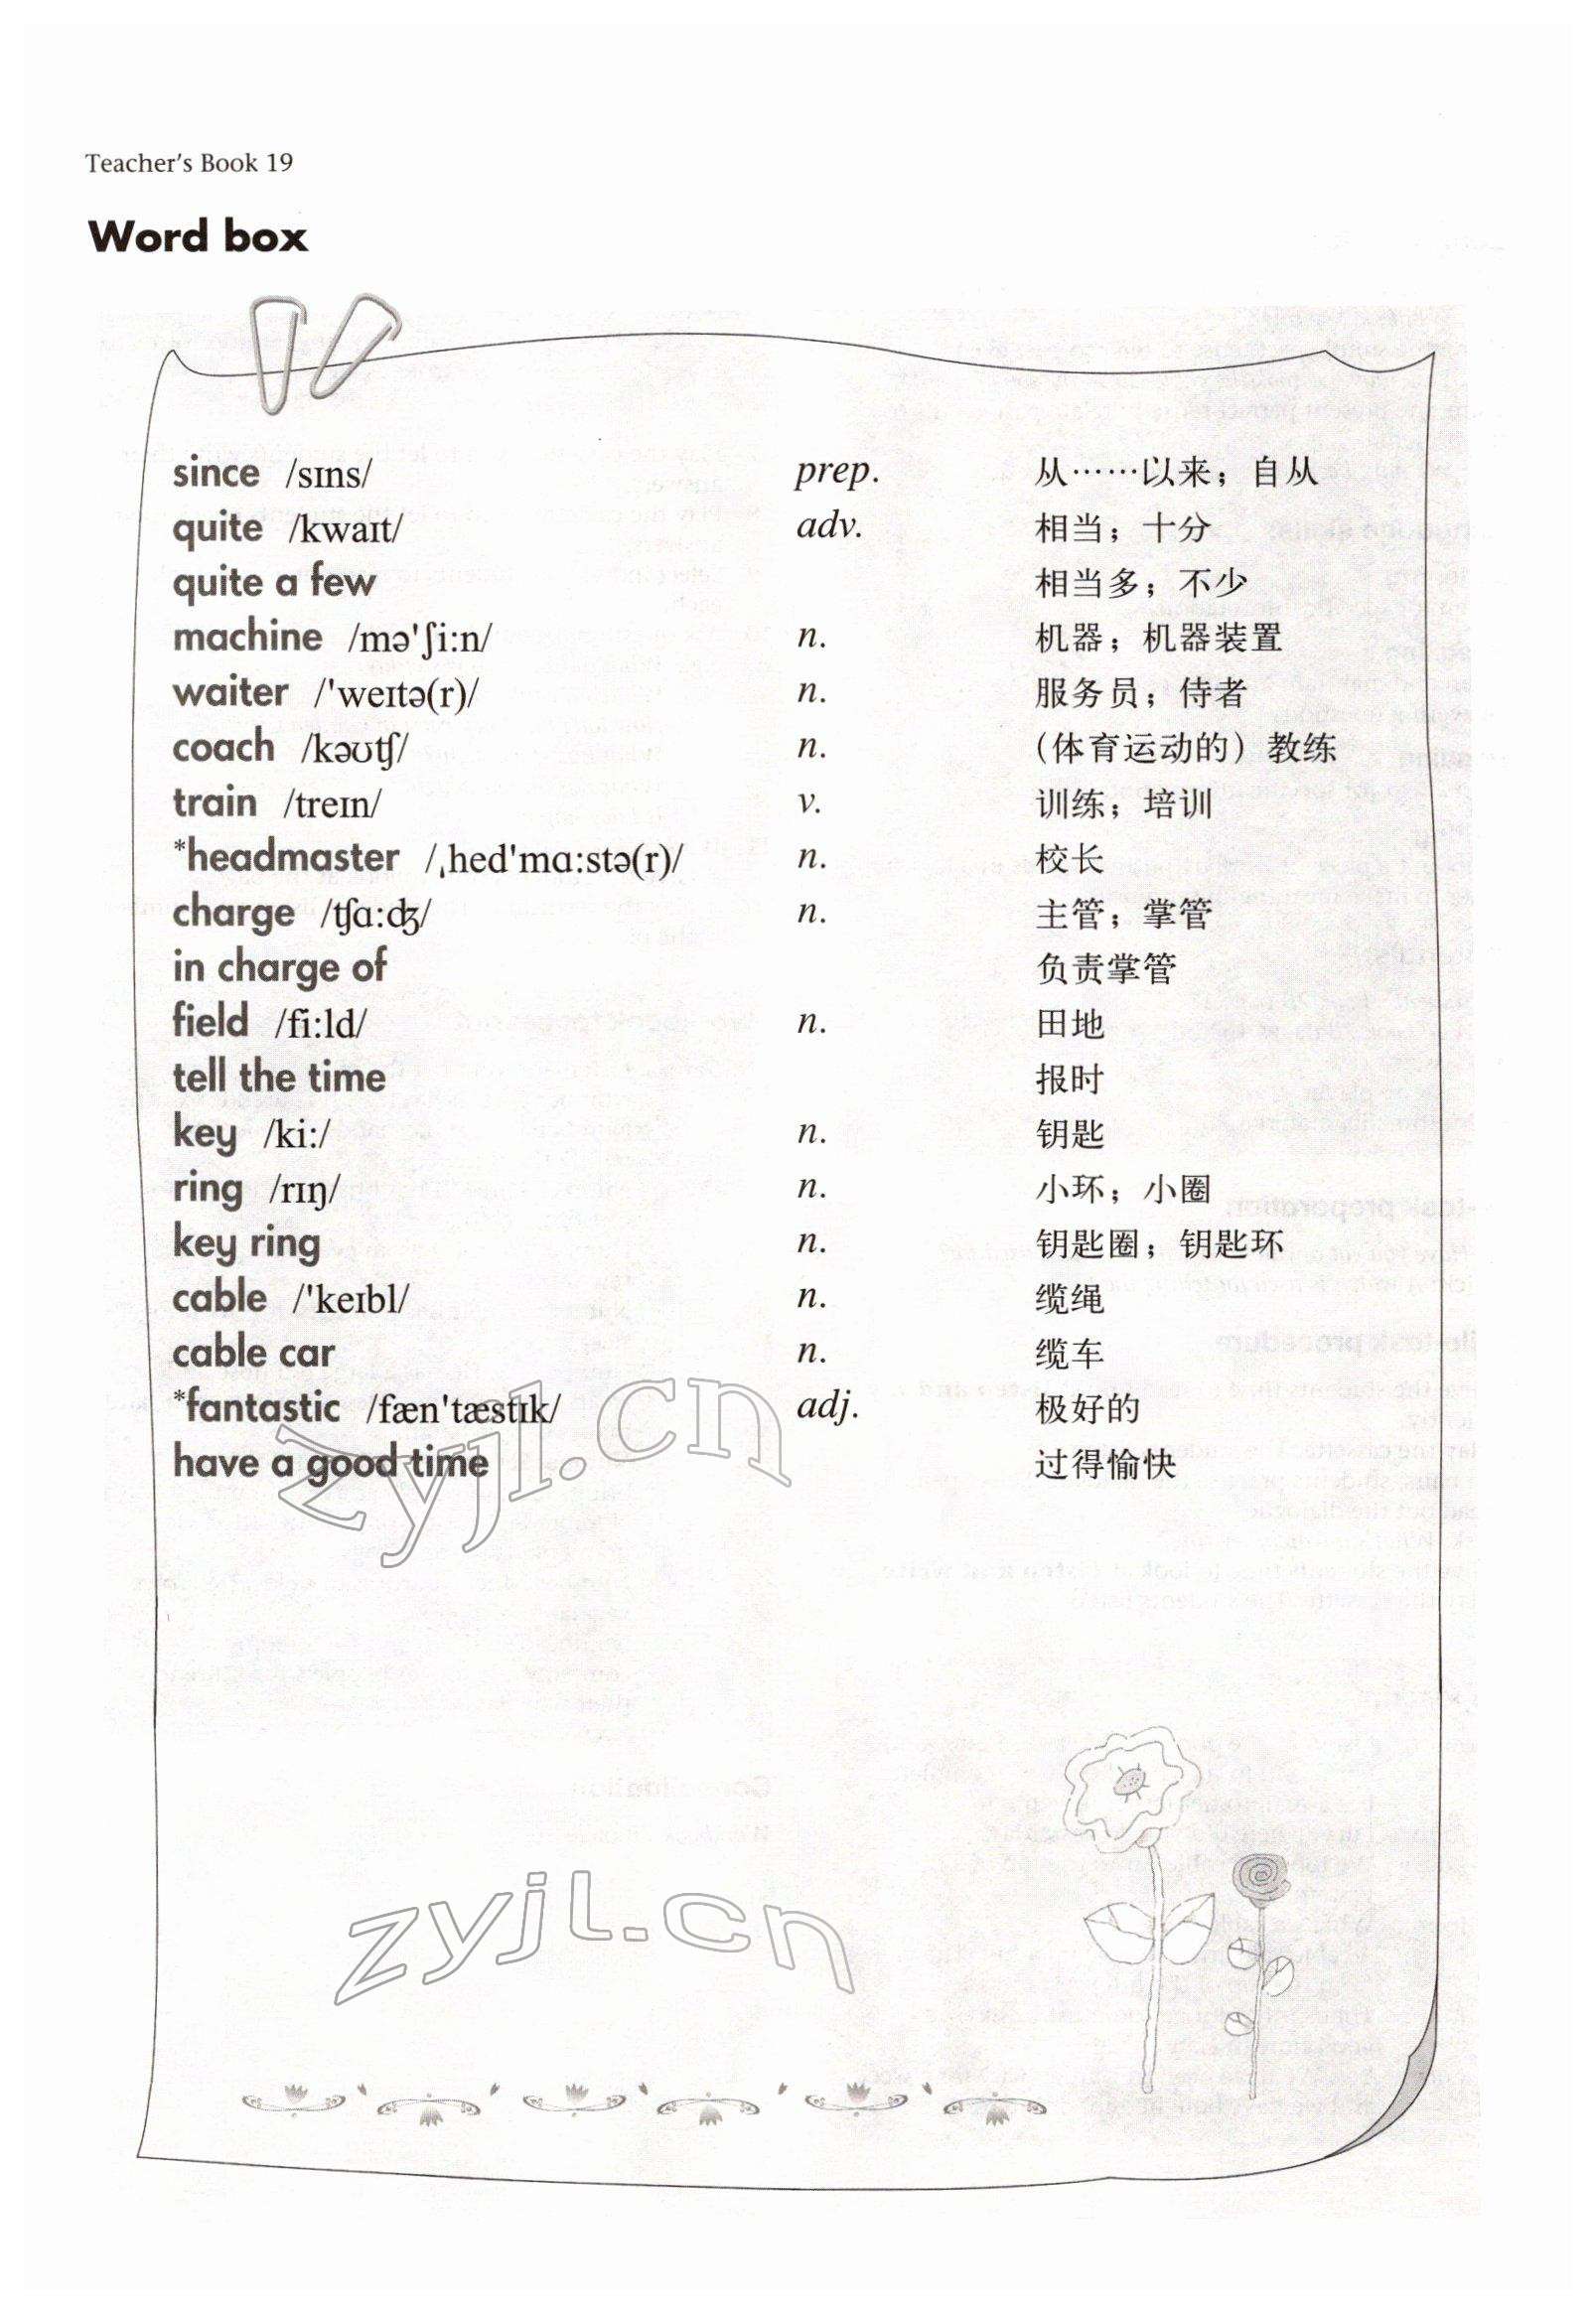 Teacher's Book 19
Word box
since /sɪns/ prep. 从……以来；自从
quite /kwaɪt/ adv. 相当；十分
quite a few 相当多；不少
machine /mə'ʃi:n/ n. 机器；机器装置
waiter /'weɪtə(r)/ n. 服务员；侍者
coach /kəʊʧ/ n. （体育运动的）教练
train /treɪn/ v. 训练；培训
*headmaster /ˌhed'mɑ:stə(r)/ n. 校长
charge /ʧɑ:ʤ/ n. 主管；掌管
in charge of 负责掌管
field /fi:ld/ n. 田地
tell the time 报时
key /ki:/ n. 钥匙
ring /rɪŋ/ n. 小环；小圈
key ring n. 钥匙圈；钥匙环
cable /'keɪbl/ n. 缆绳
cable car n. 缆车
*fantastic /fæn'tæstɪk/ adj. 极好的
have a good time 过得愉快
zyjl.cn
zyjl.cn